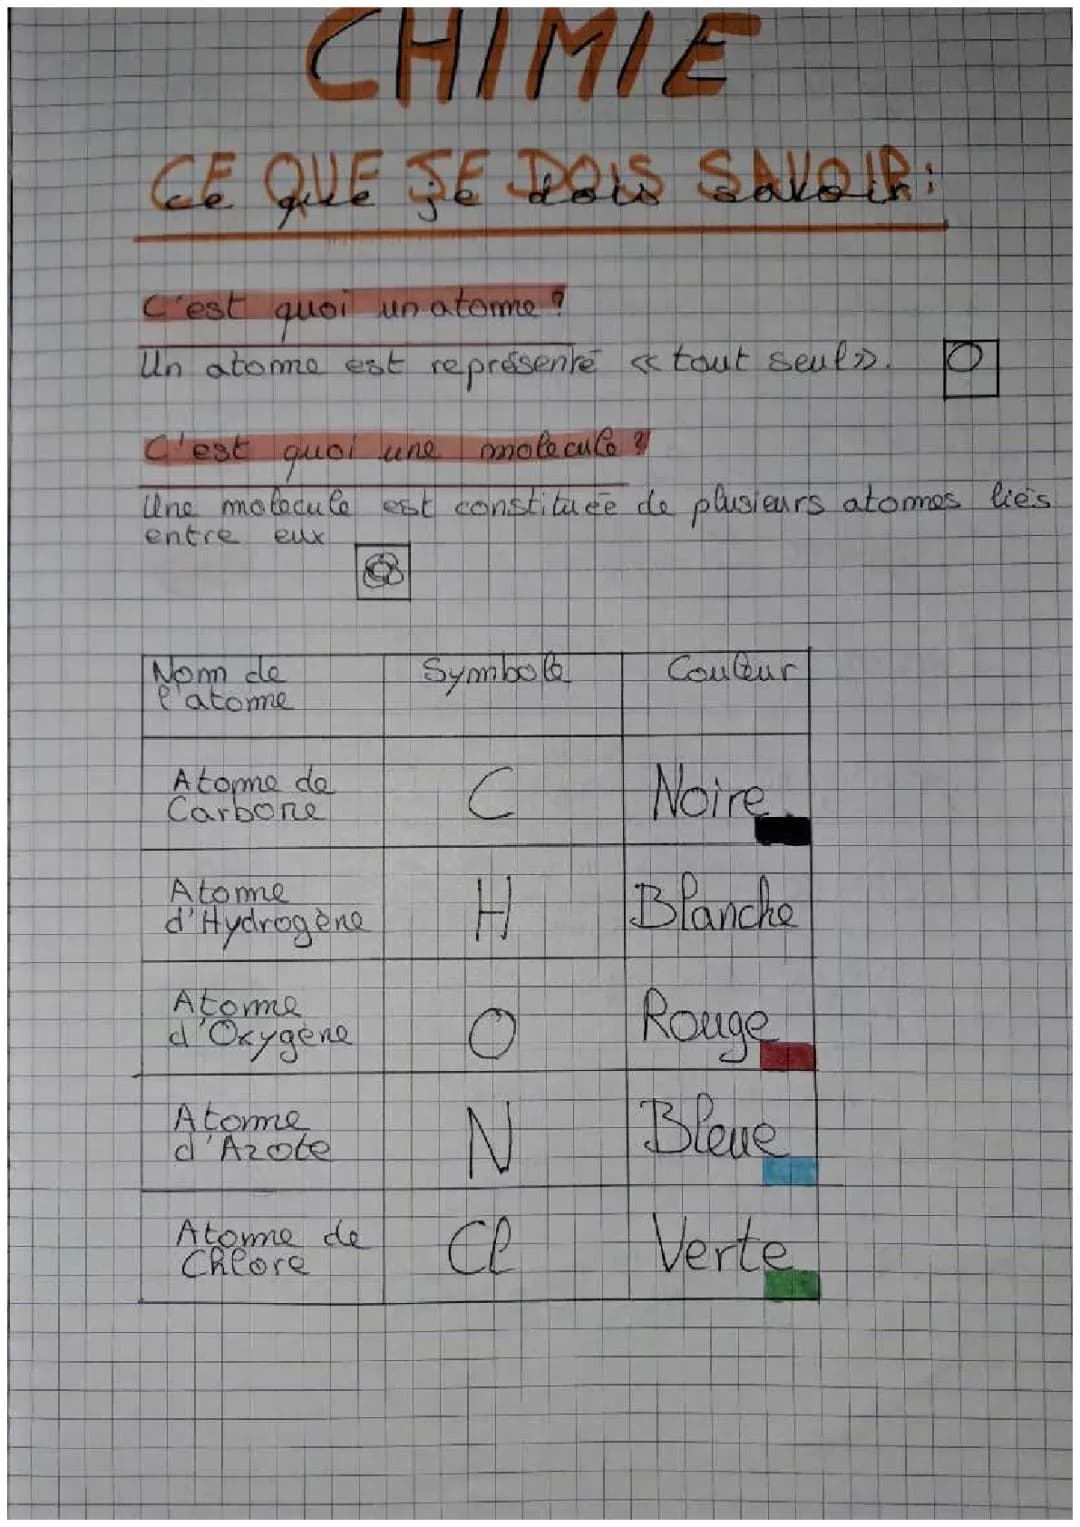 CHIMIE
CE QUE JE DOIS SAVOIR:
ce que je dois savoir:
C'est quoi un atome ?
Un atome est représenté « tout seul ».
C'est quoi une molécule ?
Une molécule est constituée de plusieurs atomes liés
entre eux
Nom de l'atome Symbole Couleur
Atome de Carbone C Noire
Atome d'Hydrogène H Blanche
Atome d'Oxygène O Rouge
Atome d'Azote N Bleue
Atome de Chlore Cl Verte